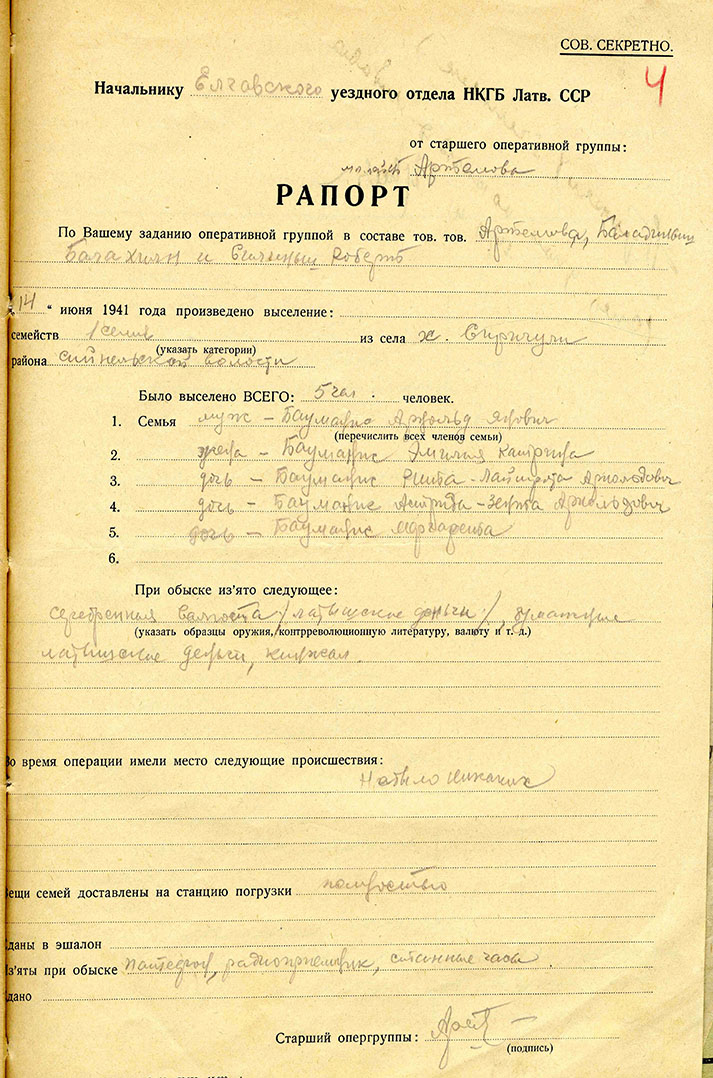 СОВ. СЕКРЕТНО.
4
Начальнику Елгавского уездного отдела НКГБ Латв. ССР
от старшего оперативной группы:
Артемова
РАПОРТ
По Вашему заданию оперативной группой в составе тов. тов. Артемова,
и Роберт
14 “ июня 1941 года произведено выселение:
семейств 1 семья из села х.
(указать категории)
района волости
Было выселено ВСЕГО: 5 чел. человек.
1. Семья муж – Бауманис Арнольд Янович
(перечислить всех членов семьи)
2. жена – Бауманис Эмилия
3. дочь – Бауманис Рита-Лаймдота Арнольдович
4. дочь – Бауманис Астрида-Зента Арнольдович
5. дочь – Бауманис Маргарита
6.
При обыске из'ято следующее:
валюта /латышские деньги/, бумажные
(указать образцы оружия, контрреволюционную литературу, валюту и т. д.)
латышские деньги, кинжал.
о время операции имели место следующие происшествия:
Не было никаких
ещи семей доставлены на станцию погрузки полностью
даны в эшалон
з'яты при обыске патефон, радиоприемник, стенные часы.
дано
Старший опергруппы:
(подпись)